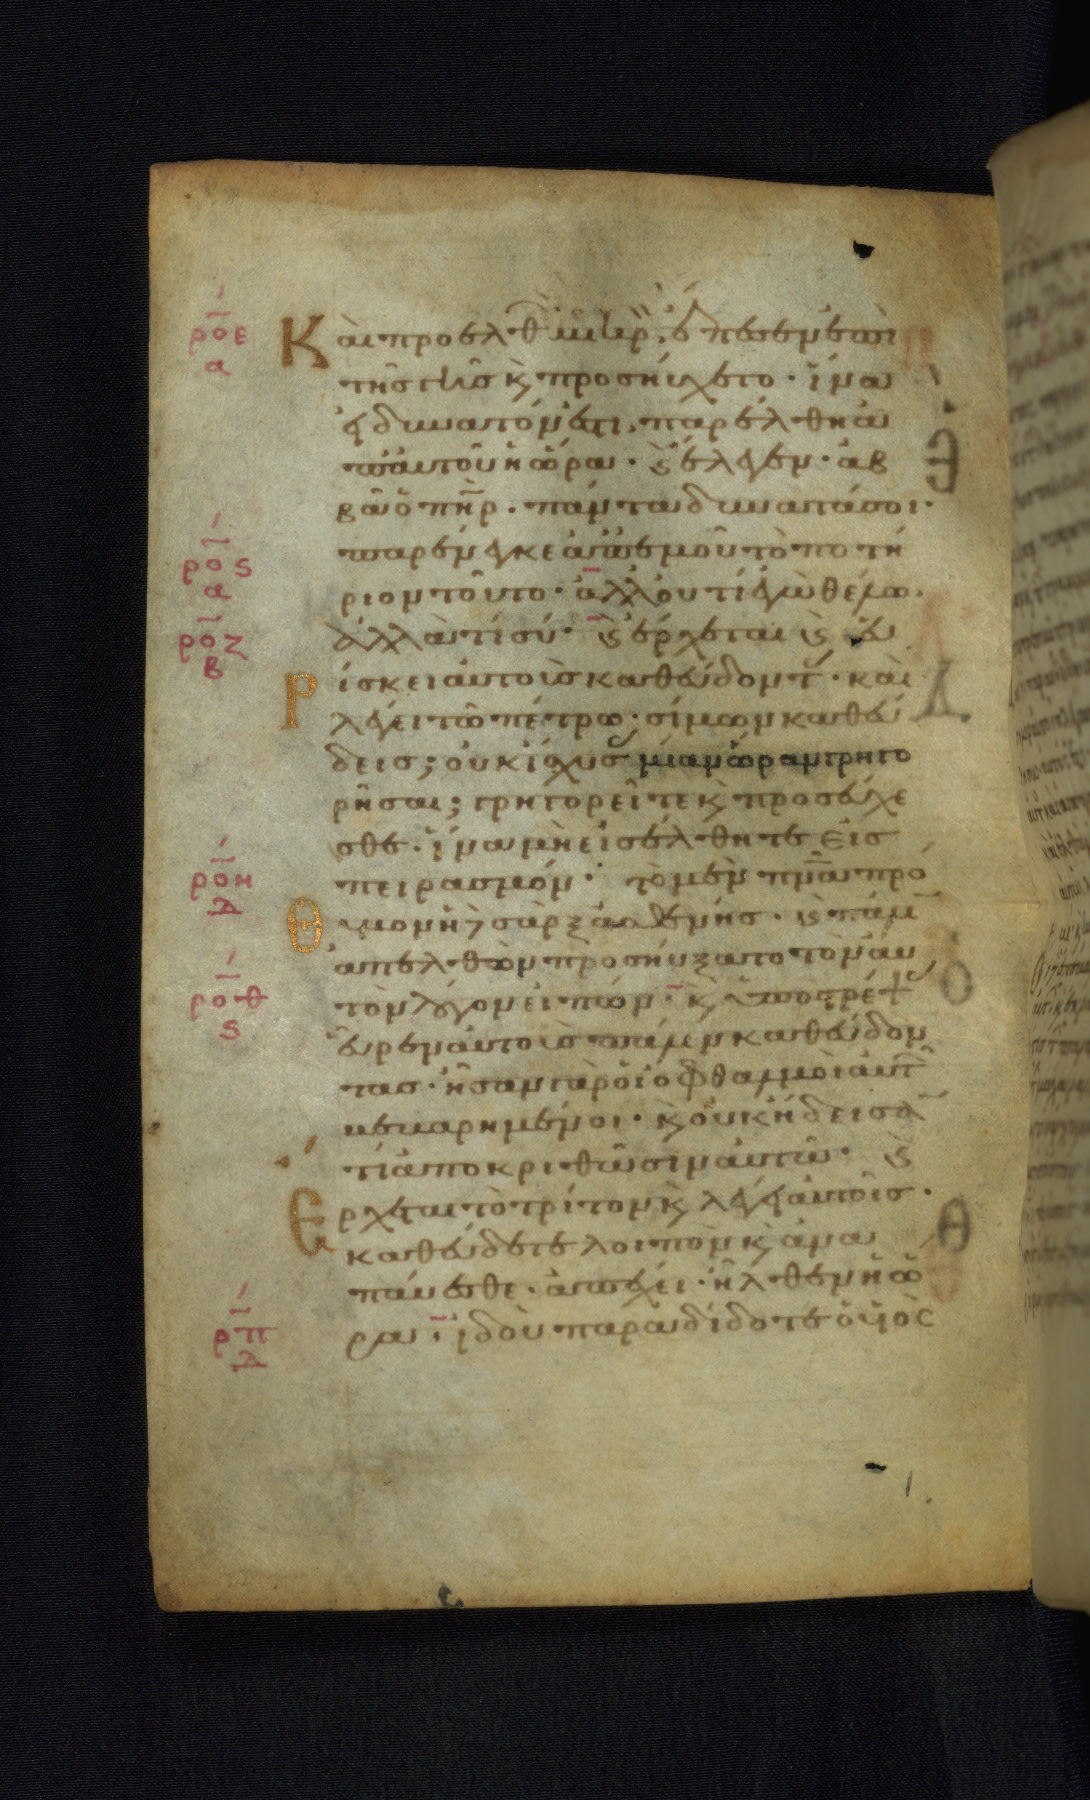 ροε
α
Καὶ προελθ μικρ, ἔπεσεν ἐπὶ
τῆς γῆς κ προσηύχετο· ἵνα
εἰ δυνατόν ἐστι, παρέλθη ἀ
π αὐτοῦ ἡ ὥρα· κ ἔλεγεν· ἀβ
βᾶ ὁ πηρ· πάντα δυνατά σοι·
παρένεγκε ἀπ ἐμοῦ τὸ ποτή
ροϛ
α
ριον τοῦτο· ἀλλ οὐ τί ἐγὼ θέλω·
ροζ
β
ἀλλὰ τί σύ· κ ἔρχεται κ εὑ
Ρίσκει αὐτοὺς καθεύδοντ· καὶ
λέγει τῶ πέτρω· σίμων καθεύ
δεις; οὐκ ἴσχυσ μίαν ὥραν γρηγο
ρῆσαι; γρηγορεῖτε κ προσεύχε
σθε· ἵνα μὴ εἰσέλθητε εἰς
ροη
δ
πειρασμόν· τὸ μὲν πνα πρό
Θυμον ἡ σὰρξ ἀσθενής· κ πάλιν
ἀπελθὼν προσηύξατο τὸν αὐ
ροθ
ϛ
τὸν λόγον εἰπών· κ ὑποστρέψ
εὗρεν αὐτοὺς πάλιν καθεύδον
τας· ἦσαν γὰρ οἱ ὀφθαλμοὶ αὐτ
βεβαρημένοι· κ οὐκ ἤδεισα
τί ἀποκριθῶσιν αὐτῶ· κ
Ερχεται τὸ τρίτον κ λέγει αὐτοῖς·
καθεύδετε λοιπὸν κ ἀνα
παύεσθε· ἀπέχει· ἦλθεν ἡ ὥ
ρπ
δ
ρα· ἰδοὺ παραδίδοτε ὁ υἱὸς